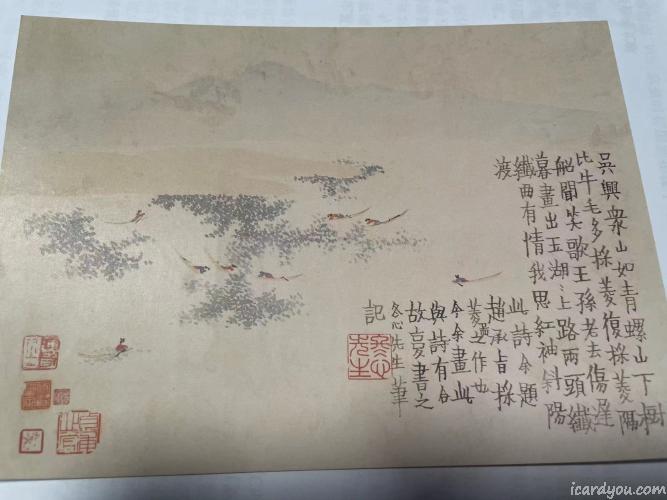 吳興衆山如青螺山下樹
比牛毛多採菱復採菱隔
船聞笑歌王孫老去傷遲
暮畫出玉湖〻上路兩頭纖
纖曲有情我思紅袖斜陽
渡
此詩余題
趙承旨採
菱圖之作也
今余畫此
與詩有合
故复書之
冬心先生筆
記
冬心先生
icardyou.com